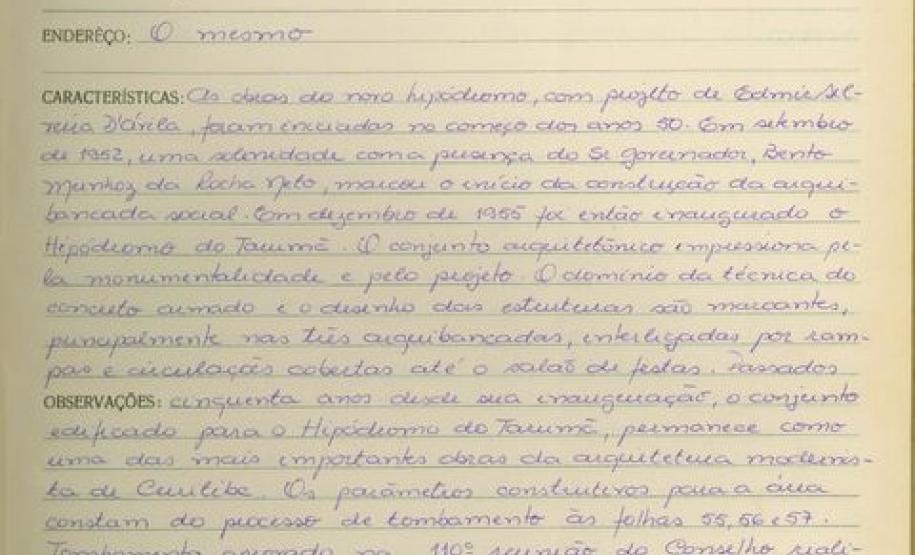 ENDERÊÇO: O mesmo
CARACTERÍSTICAS: As obras do novo hipódromo, com projeto de Edmir Sil-
veira D'ávila, foram iniciadas no começo dos anos 50. Em setembro
de 1952, uma solenidade com a presença do Sr governador, Bento
Munhoz da Rocha Neto, marcou o início da construção da arqui-
bancada social. Em dezembro de 1955 foi então inaugurado o
Hipódromo do Tarumã. O conjunto arquitetônico impressiona pe-
la monumentalidade e pelo projeto. O domínio da técnica do
concreto armado e o desenho das estruturas são marcantes,
principalmente nas três arquibancadas, interligadas por ram-
pas e circulações cobertas até o salão de festas. Passados
OBSERVAÇÕES: cinquenta anos desde sua inauguração, o conjunto
edificado para o Hipódromo do Tarumã, permanece como
uma das mais importantes obras da arquitetura modernis-
ta de Curitiba. Os parâmetros construtivos para a área
constam do processo de tombamento às folhas 55, 56 e 57.
Tombamento aprovado na 110ª reunião do Conselho reali-